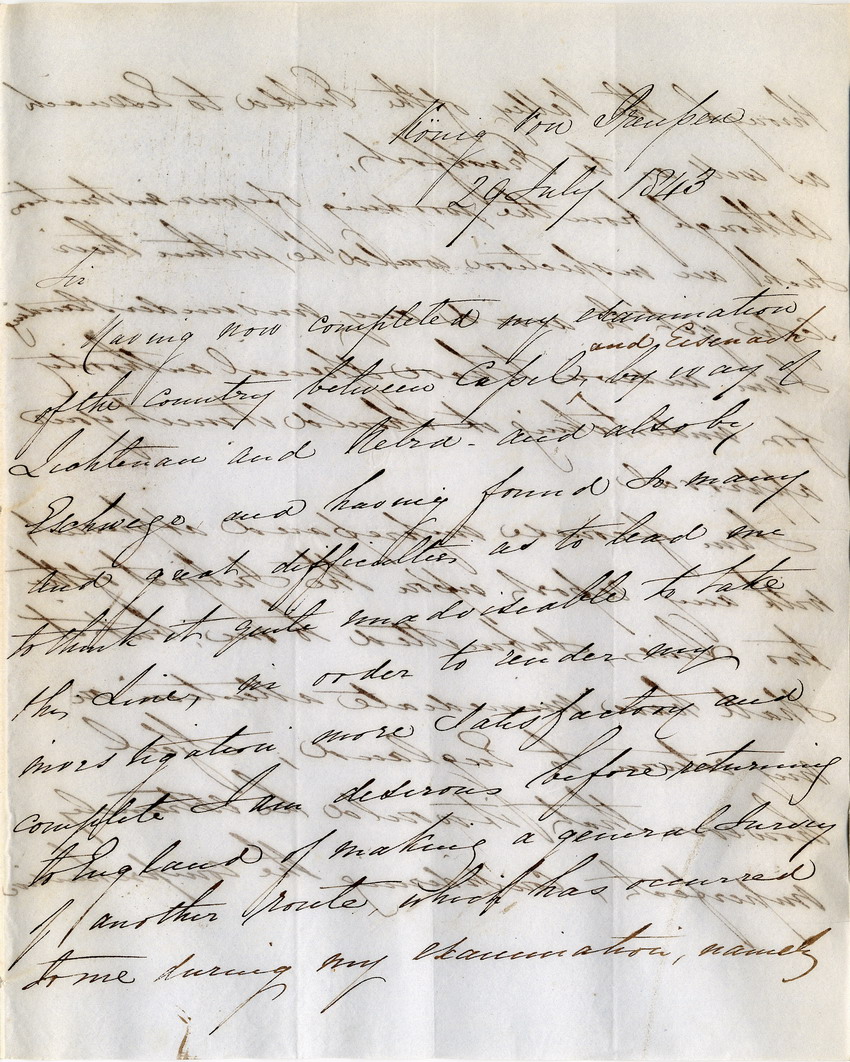 König von Preußen
29 July 1843
Sir
Having now completed my examination
and Eisenach
of the country between Cassel, by way of
Lichtenau and Netra - and also by
Eschwege and having found so many
and great difficulties as to lead me
to think it quite unadviseable to take
this Line, in order to render my
investigation more satisfactory and
complete I am desirous before returning
to England of making a general Survey
of another route, which has occurred
to me during my examination, namely